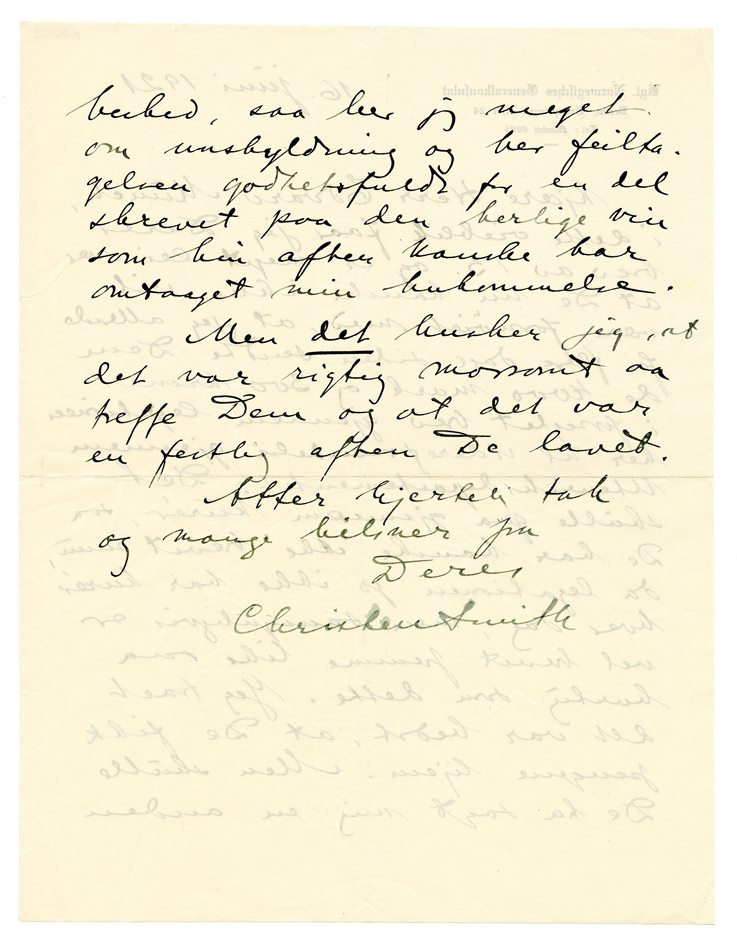 besked, saa ber jeg meget
om unskyldning og ber feilta-
gelsen godhetsfuldt for en del
skrevet paa den herlige vin
som hin aften kanske har
omtaaget min hukommelse.
Men det husker jeg, at
det var rigtig morsomt aa
treffe Dem og at det var
en festlig aften De lavet.
Atter hjertelig tak
og mange hilsner fra
Deres
Christen Smith